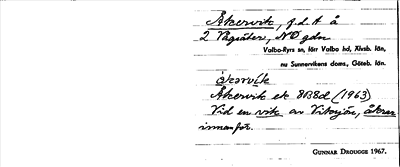 Åkervik, f.d. t å
2 Vågsäter, NO gdn
Valbo-Ryrs sn, förr Valbo hd, Älvsb. län,
nu Sunnervikens doms., Göteb. län.
åkərvík
Åkervik ek 8B8d (1963)
Vid en vik av Viksjön, åkrar
innanför.
GUNNAR DROUGGE 1967.